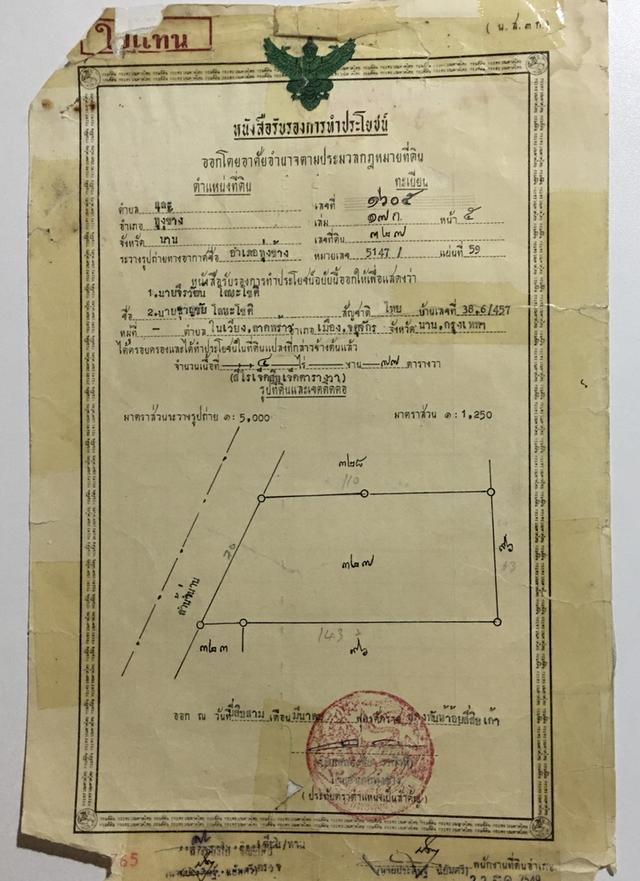 ใบแทน
(น.ส.๓ก)
หนังสือรับรองการทำประโยชน์
ออกโดยอาศัยอำนาจตามประมวลกฎหมายที่ดิน
ตำแหน่งที่ดิน ทะเบียน
ตำบล และ เลขที่ ๑๖๐๕
อำเภอ ทุ่งช้าง เล่ม ๑๗ก. หน้า ๕
จังหวัด น่าน เลขที่ดิน ๓๒๗
ระวางรูปถ่ายทางอากาศชื่อ อำเภอทุ่งช้าง หมายเลข 5147 / แผ่นที่ 59
หนังสือรับรองการทำประโยชน์ฉบับนี้ออกให้เพื่อแสดงว่า
1.นาย
ชื่อ 2.นาย สัญชาติ ไทย บ้านเลขที่ 38,6/457
หมู่ที่ - ตำบล ในเวียง,ลาดพร้าว อำเภอ เมือง,จตุจักร จังหวัด น่าน,กรุงเทพฯ
ได้ครอบครองและได้ทำประโยชน์ในที่ดินแปลงที่กล่าวข้างต้นแล้ว
จำนวนเนื้อที่ ๔ ไร่ — งาน — ๗๗ ตารางวา
(สี่ไร่เจ็ดสิบเจ็ดตารางวา)
รูปที่ดินและเขตติดต่อ
มาตราส่วนระวางรูปถ่าย ๑: 5,000 มาตราส่วน ๑ : 1,250
๓๒๘
110
70
๓๒๗
๗๖
ลำน้ำน่าน
๓๒๓
143
๗๖
ออก ณ วันที่ยี่สิบสาม เดือน มีนาคม พุทธศักราช สองพันห้าร้อยสี่สิบเก้า
(ประทับตราตำแหน่งเป็นสำคัญ)
65
พนักงานที่ดินอำเภอ